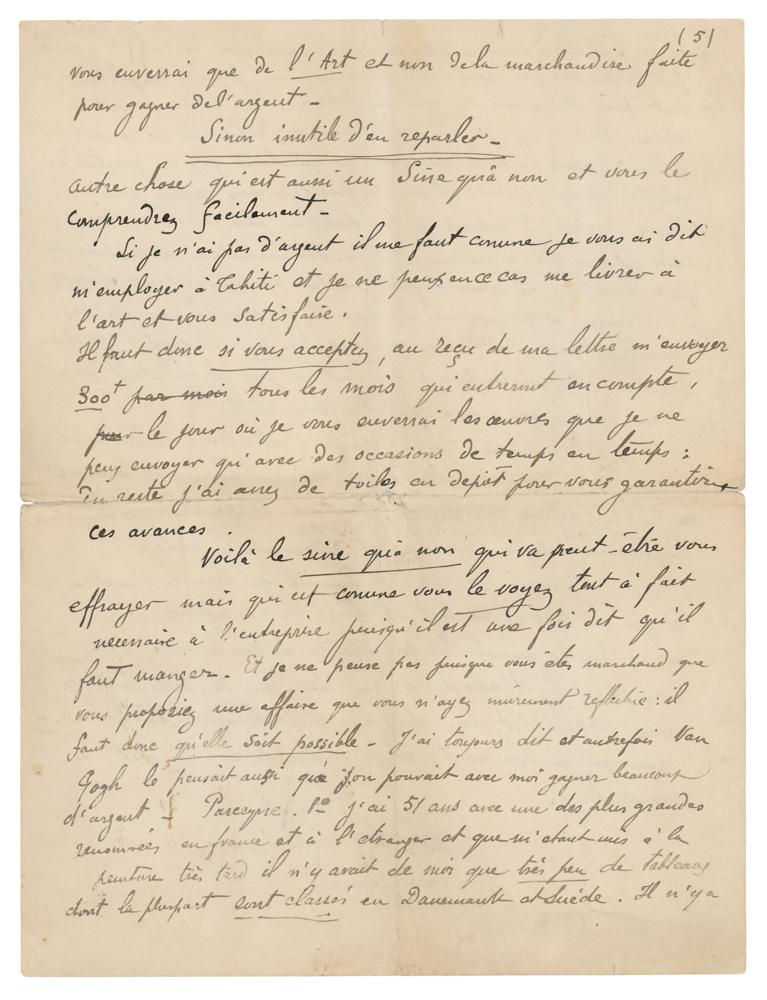 (5)
vous enverrai que de l'Art et non de la marchandise faite
pour gagner de l'argent -
Sinon inutile d'en reparler -
autre chose qui est aussi un Sine quâ non et vous le
comprendrez facilement -
Si je n'ai pas d'argent il me faut comme je vous ai dit
m'employer à Tahiti et je ne peux en ce cas me livrer à
l'art et vous satisfaire.
Il faut donc si vous acceptez, au reçu de ma lettre m'envoyer
300f par mois tous les mois qui entreront en compte,
pour le jour où je vous enverrai les œuvres que je ne
peux envoyer qu'avec des occasions de temps en temps :
Du reste j'ai assez de toiles en dépôt pour vous garantir
ces avances.
Voilà le sine quâ non qui va peut-être vous
effrayer mais qui est comme vous le voyez tout à fait
necessaire à l'entreprise puisqu'il est une fois dit qu'il
faut manger - Et je ne pense pas puisque vous êtes marchand que
vous proposiez une affaire que vous n'ayez mûrement reflechie : il
faut donc qu'elle soit possible - J'ai toujours dit et autrefois Van
Gogh le pensait aussi que l'on pouvait avec moi gagner beaucoup
d'argent - Parceque. 1o j'ai 51 ans avec une des plus grandes
renommées en france et à l'etranger et que m'etant mis à la
peinture très tard il n'y avait de moi que très peu de tableaux
dont la pluspart sont classés en Danemark et Suéde. Il n'y a